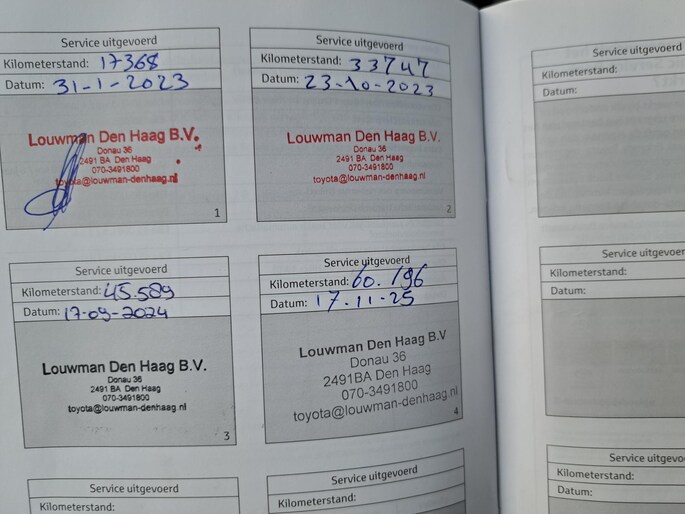 Service uitgevoerd
Kilometerstand: 17368
Datum: 31-1-2023
Louwman Den Haag B.V.
Donau 36
2491 BA Den Haag
070-3491800
toyota@louwman-denhaag.nl
1
Service uitgevoerd
Kilometerstand: 33747
Datum: 23-10-2023
Louwman Den Haag B.V.
Donau 36
2491 BA Den Haag
070-3491800
toyota@louwman-denhaag.nl
2
Service uitgevoerd
Kilometerstand: 45.589
Datum: 17-09-2024
Louwman Den Haag B.V.
Donau 36
2491 BA Den Haag
070-3491800
toyota@louwman-denhaag.nl
3
Service uitgevoerd
Kilometerstand: 60.196
Datum: 17.11-25
Louwman Den Haag B.V
Donau 36
2491BA Den Haag
070-3491800
toyota@louwman-denhaag.nl
4
Service uitgevoerd
Kilometerstand:
Service uitgevoerd
Kilometerstand:
Service uitgevoerd
Kilometerstand:
Datum:
Service uitgevoerd
Kilometerstand:
Datum:
Service uitgevo
Kilometerstand:
Datum: